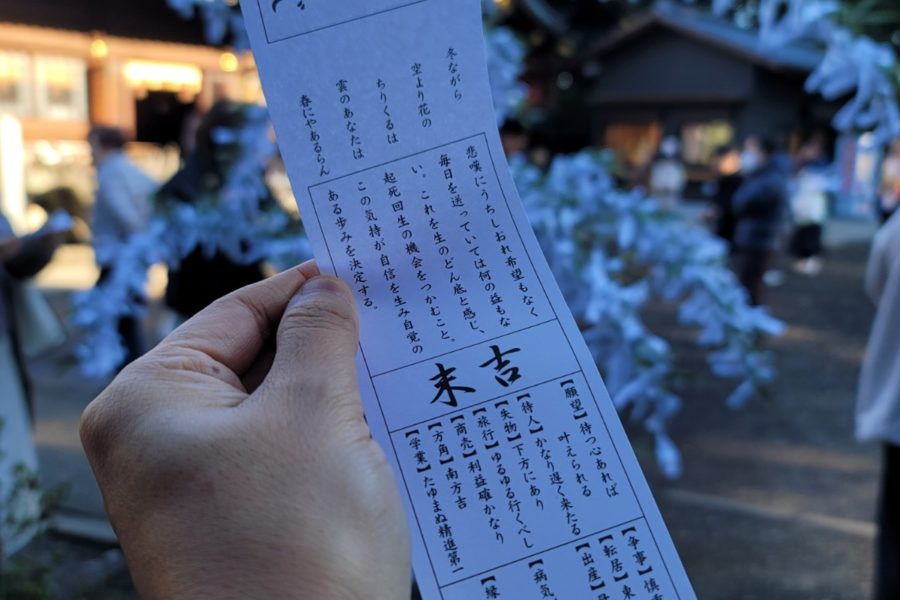 冬ながら
空より花の
ちりくるは
雲のあなたは
春にやあるらん
悲嘆にうちしおれ希望もなく
毎日を送っていては何の益もな
い。これを生のどん底と感じ、
起死回生の機会をつかむこと。
この気持が自信を生み自覚の
ある歩みを決定する。
末吉
【願望】待つ心あれば
叶えられる
【待人】かなり遅く来たる
【失物】下方にあり
【旅行】ゆるゆる行くべし
【商売】利益確かなり
【方角】南方吉
【学業】たゆまぬ精進第一
【争事】慎
【転居】東
【出産】
【病気
【縁